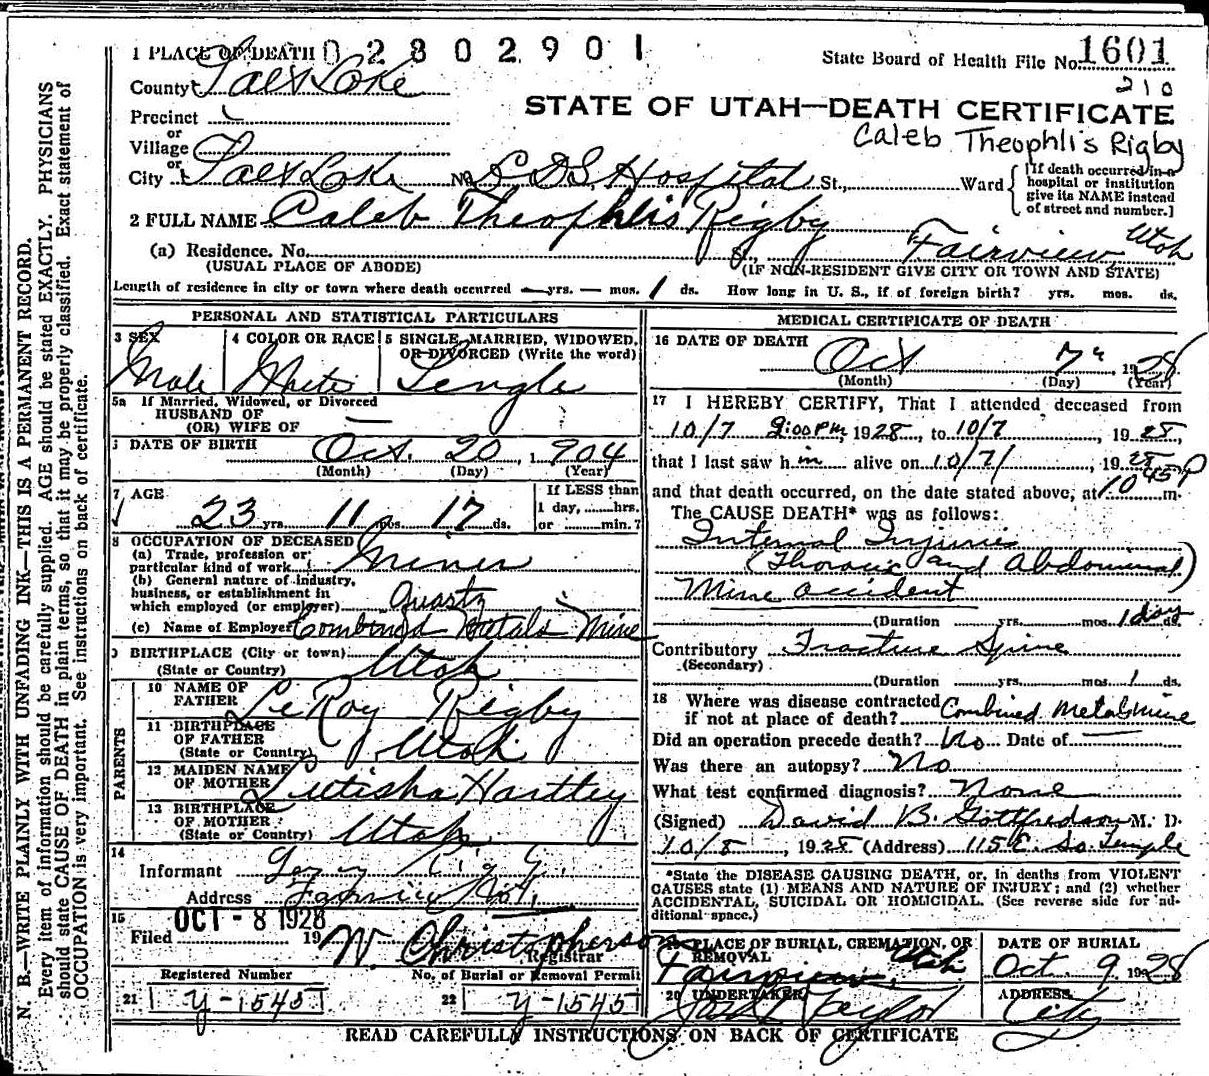 1 PLACE OF DEATH 0 2 8 0 2 9 0 1
State Board of Health File No. 1601
210
County Salt Lake
STATE OF UTAH—DEATH CERTIFICATE
Precinct
Caleb Theophlis Rigby
or
Village
or
City Salt Lake No. L.D.S. Hospital St., Ward
[If death occurred in a hospital or institution give its NAME instead of street and number.]
2 FULL NAME Caleb Theophlis Rigby
(a) Residence. No. S., Fairview, Utah
(USUAL PLACE OF ABODE) (IF NON-RESIDENT GIVE CITY OR TOWN AND STATE)
Length of residence in city or town where death occurred — yrs. — mos. 1 ds. How long in U. S., if of foreign birth? yrs. mos. ds.
PERSONAL AND STATISTICAL PARTICULARS
3 SEX 4 COLOR OR RACE 5 SINGLE, MARRIED, WIDOWED, OR DIVORCED (Write the word)
Male White Single
5a If Married, Widowed, or Divorced
HUSBAND OF
(OR) WIFE OF —
6 DATE OF BIRTH Oct. 20, 1904
(Month) (Day) (Year)
7 AGE
23 yrs. 11 mos. 17 ds.
If LESS than
1 day, hrs.
or min.?
8 OCCUPATION OF DECEASED
(a) Trade, profession or
particular kind of work Miner
(b) General nature of industry,
business, or establishment in
which employed (or employer) Quartz
(c) Name of Employer Combined Metals Mine
9 BIRTHPLACE (City or town)
(State or Country) Utah
PARENTS
10 NAME OF
FATHER LeRoy Rigby
11 BIRTHPLACE
OF FATHER
(State or Country) Utah
12 MAIDEN NAME
OF MOTHER Lutisha Hartley
13 BIRTHPLACE
OF MOTHER
(State or Country) Utah
14
Informant
Address Fairview Ut.
15 OCT - 8 1928
Filed 19 W Christopherson
Registrar
Registered Number No. of Burial or Removal Permit
21 Y-1545 22 Y-1545
MEDICAL CERTIFICATE OF DEATH
16 DATE OF DEATH
Oct 7th, 1928
(Month) (Day) (Year)
17 I HEREBY CERTIFY, That I attended deceased from
10/7 2:00 PM, 1928, to 10/7, 1928,
that I last saw him alive on 10/7/, 1928
and that death occurred, on the date stated above, at 10 45 P m.
The CAUSE DEATH* was as follows:
Internal Injuries
(Thoracic and Abdominal)
Mine accident
(Duration yrs. mos. 1 day ds.
Contributory Fracture Spine
(Secondary)
(Duration yrs. mos. 1 ds.
18 Where was disease contracted
if not at place of death? Combined Metals mine
Did an operation precede death? No Date of —
Was there an autopsy? No
What test confirmed diagnosis? None
(Signed) David B. Gottfredson M. D.
10/8, 1928 (Address) 115 E. So. Temple
*State the DISEASE CAUSING DEATH, or, in deaths from VIOLENT
CAUSES state (1) MEANS AND NATURE OF INJURY; and (2) whether
ACCIDENTAL, SUICIDAL OR HOMICIDAL. (See reverse side for ad-
ditional space.)
PLACE OF BURIAL, CREMATION, OR
REMOVAL
Fairview, Utah
DATE OF BURIAL
Oct. 9, 1928
20 UNDERTAKER Taylor
ADDRESS
City
READ CAREFULLY INSTRUCTIONS ON BACK OF CERTIFICATE
N. B.—WRITE PLAINLY WITH UNFADING INK—THIS IS A PERMANENT RECORD.
Every item of information should be carefully supplied. AGE should be stated EXACTLY. PHYSICIANS
should state CAUSE OF DEATH in plain terms, so that it may be properly classified. Exact statement of
OCCUPATION is very important. See instructions on back of certificate.